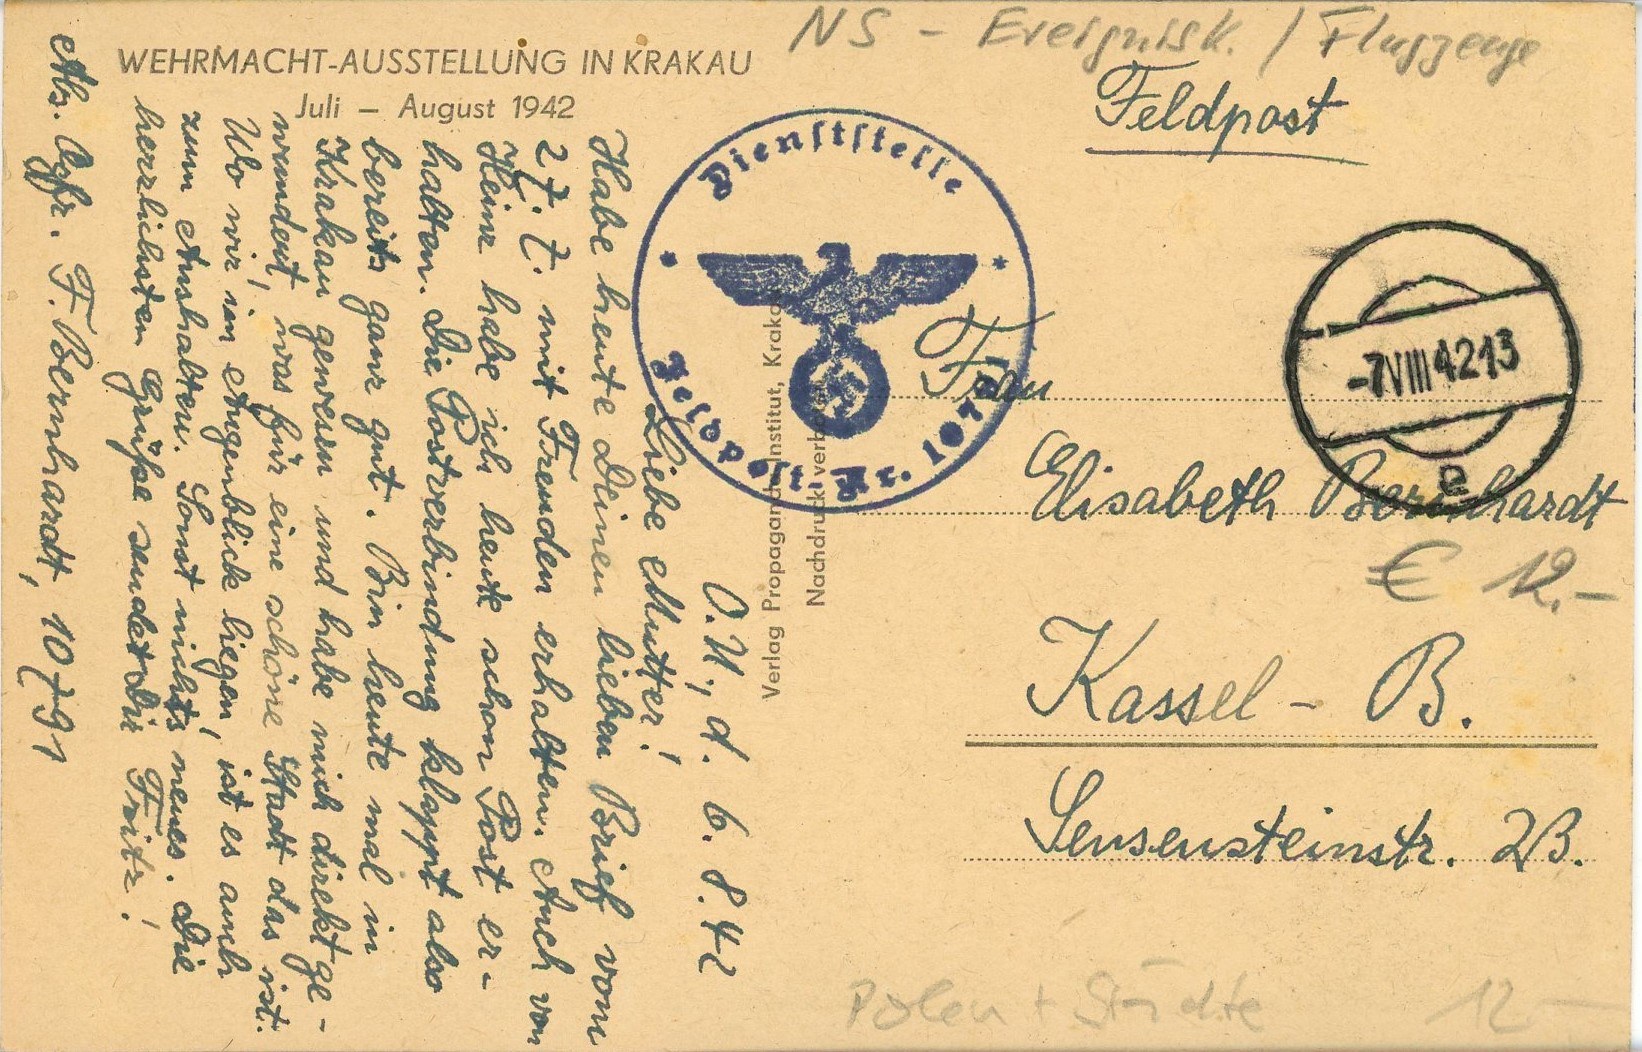 NS - Ereignisk. / Flugzeuge
WEHRMACHT-AUSSTELLUNG IN KRAKAU
Juli – August 1942
Feldpost
Dienststelle
Feldpost-Nr. 1079
-7VIII4213
a
Frau
Elisabeth Bernhardt
€ 12.-
Kassel - B.
Sensensteinstr. 2B.
Polen + Städte 12-
Verlag Propaganda-Institut, Kraka
Nachdruck verbo
O.U., d. 6.8.42
Liebe Mutter!
Habe heute Deinen lieben Brief vom
27.7. mit Freuden erhalten. Auch von
Heinz habe ich heute schon Post er-
halten. Die Postverbindung klappt also
bereits ganz gut. Bin heute mal in
Krakau gewesen und habe mich direkt ge-
wundert, was für eine schöne Stadt das ist.
Wo wir im Augenblick liegen, ist es auch
zum Aushalten. Sonst nichts neues. Die
herzlichsten Grüße sendet Dir Fritz!
Abs. Gefr. F. Bernhardt, 10791